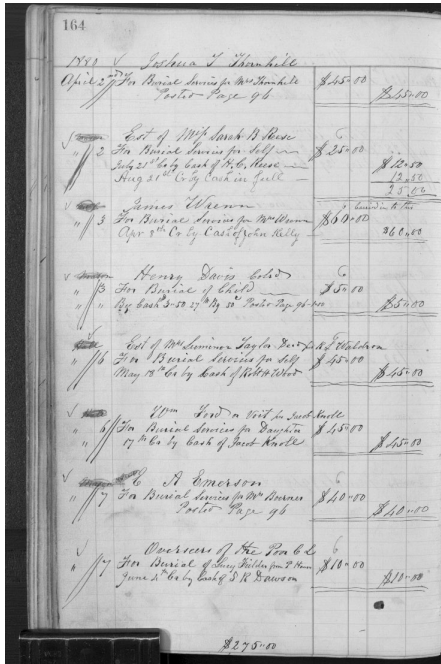 164
1880 Joshua T Thornhill
April 2nd For Burial Services for Mrs Thornhill $45.00
Posted Page 96 $45.00
Est of Mrs Sarah B Reese
" 2 For Burial Services for Self $25.00
July 21st Cr by Cash of H. C. Reese $12.50
Aug 21st Cr by Cash in full 12.50
25.00
James Wrenn
" 3 For Burial Services for Mrs Wrenn $60.00
Apr 8th Cr by Cash of John Kelly $60.00
Henry Davis Cold
" 3 For Burial of Child $5.00
" By Cash 3.50 27th By 50c Posted Page 96 $5.00
Est of Mrs Taylor Decd
" 6 For Burial Services for Self $45.00
May 18th Cr by Cash of Robt H Wood $45.00
Wm Ford or Voit for Jacob Knoll
" 6 For Burial Services for Daughter $45.00
" 17th Cr by Cash of Jacob Knoll $45.00
C A Emerson
" 7 For Burial Services for Mrs $40.00
Posted Page 96 $40.00
Overseers of the Poor C L
" 7 For Burial of Lucy Fielder from P House $10.00
June 4th Cr by Cash of S R Dawson $10.00
$275.00